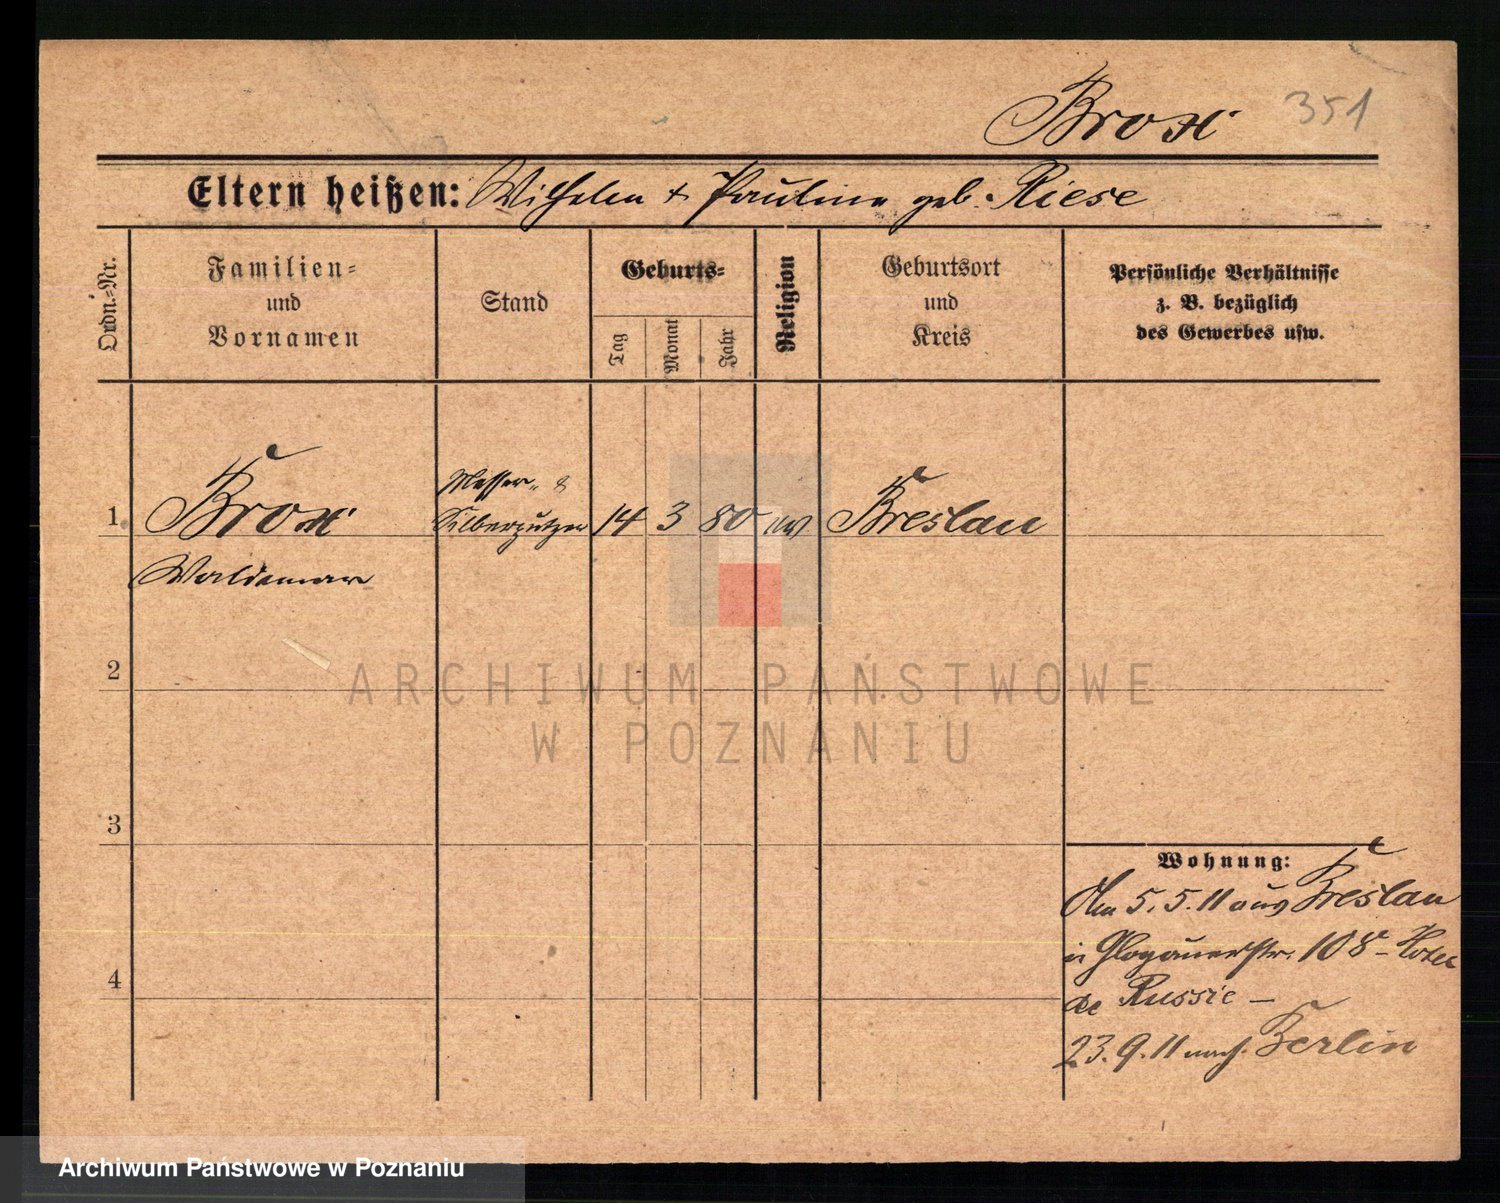 Brox 351
Eltern heißen: Wilhelm & Pauline geb. Riese
Ordn.-Nr.
Familien-
und
Vornamen
Stand
Geburts-
Tag
Monat
Jahr
Religion
Geburtsort
und
Kreis
Persönliche Verhältnisse
z. B. bezüglich
des Gewerbes usw.
Messer- &
1 Brox Silberputzer 14 3 80 ev Breslau
Waldemar
2
ARCHIWUM PAŃSTWOWE
W POZNANIU
3
Wohnung:
Am 5.5.11 aus Breslau
in Glogauerstr. 108 - Hotel
4
de Russie —
23.9.11 nach Berlin
Archiwum Państwowe w Poznaniu